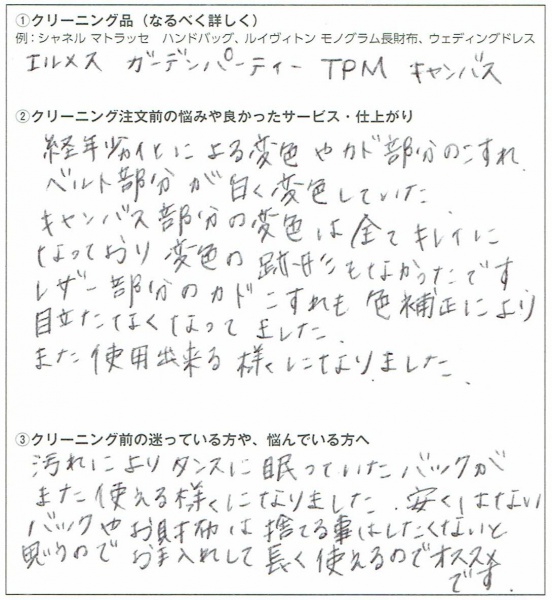 ①クリーニング品（なるべく詳しく）
例：シャネル マトラッセ ハンドバッグ、ルイヴィトン モノグラム長財布、ウェディングドレス
エルメス ガーデンパーティー TPM キャンバス
②クリーニング注文前の悩みや良かったサービス・仕上がり
経年劣化による変色やカド部分のこすれ
ベルト部分が白く変色していた.
キャンバス部分の変色は全てキレイに
なっており変色の跡形もなかったです
レザー部分のカドこすれも色補正により
目立たなくなってました.
また使用出来る様くになりました.
③クリーニング前の迷っている方や、悩んでいる方へ
汚れによりタンスに眠っていたバックが
また使える様くになりました. 安くはない
バックやお財布は捨てる事はしたくないと
思うので お手入れして長く使えるのでオススメ
です.